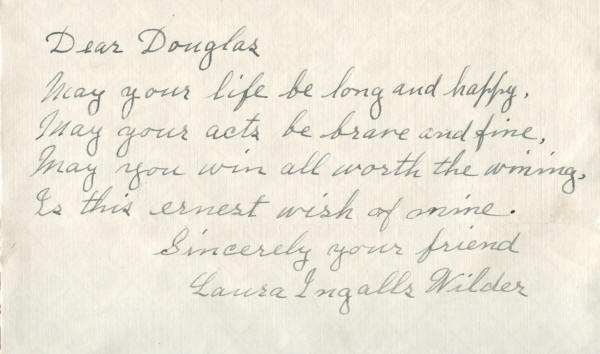 Dear Douglas
May your life be long and happy,
May your acts be brave and fine,
May you win all worth the wining,
Is this ernest wish of mine.
Sincerely your friend
Laura Ingalls Wilder